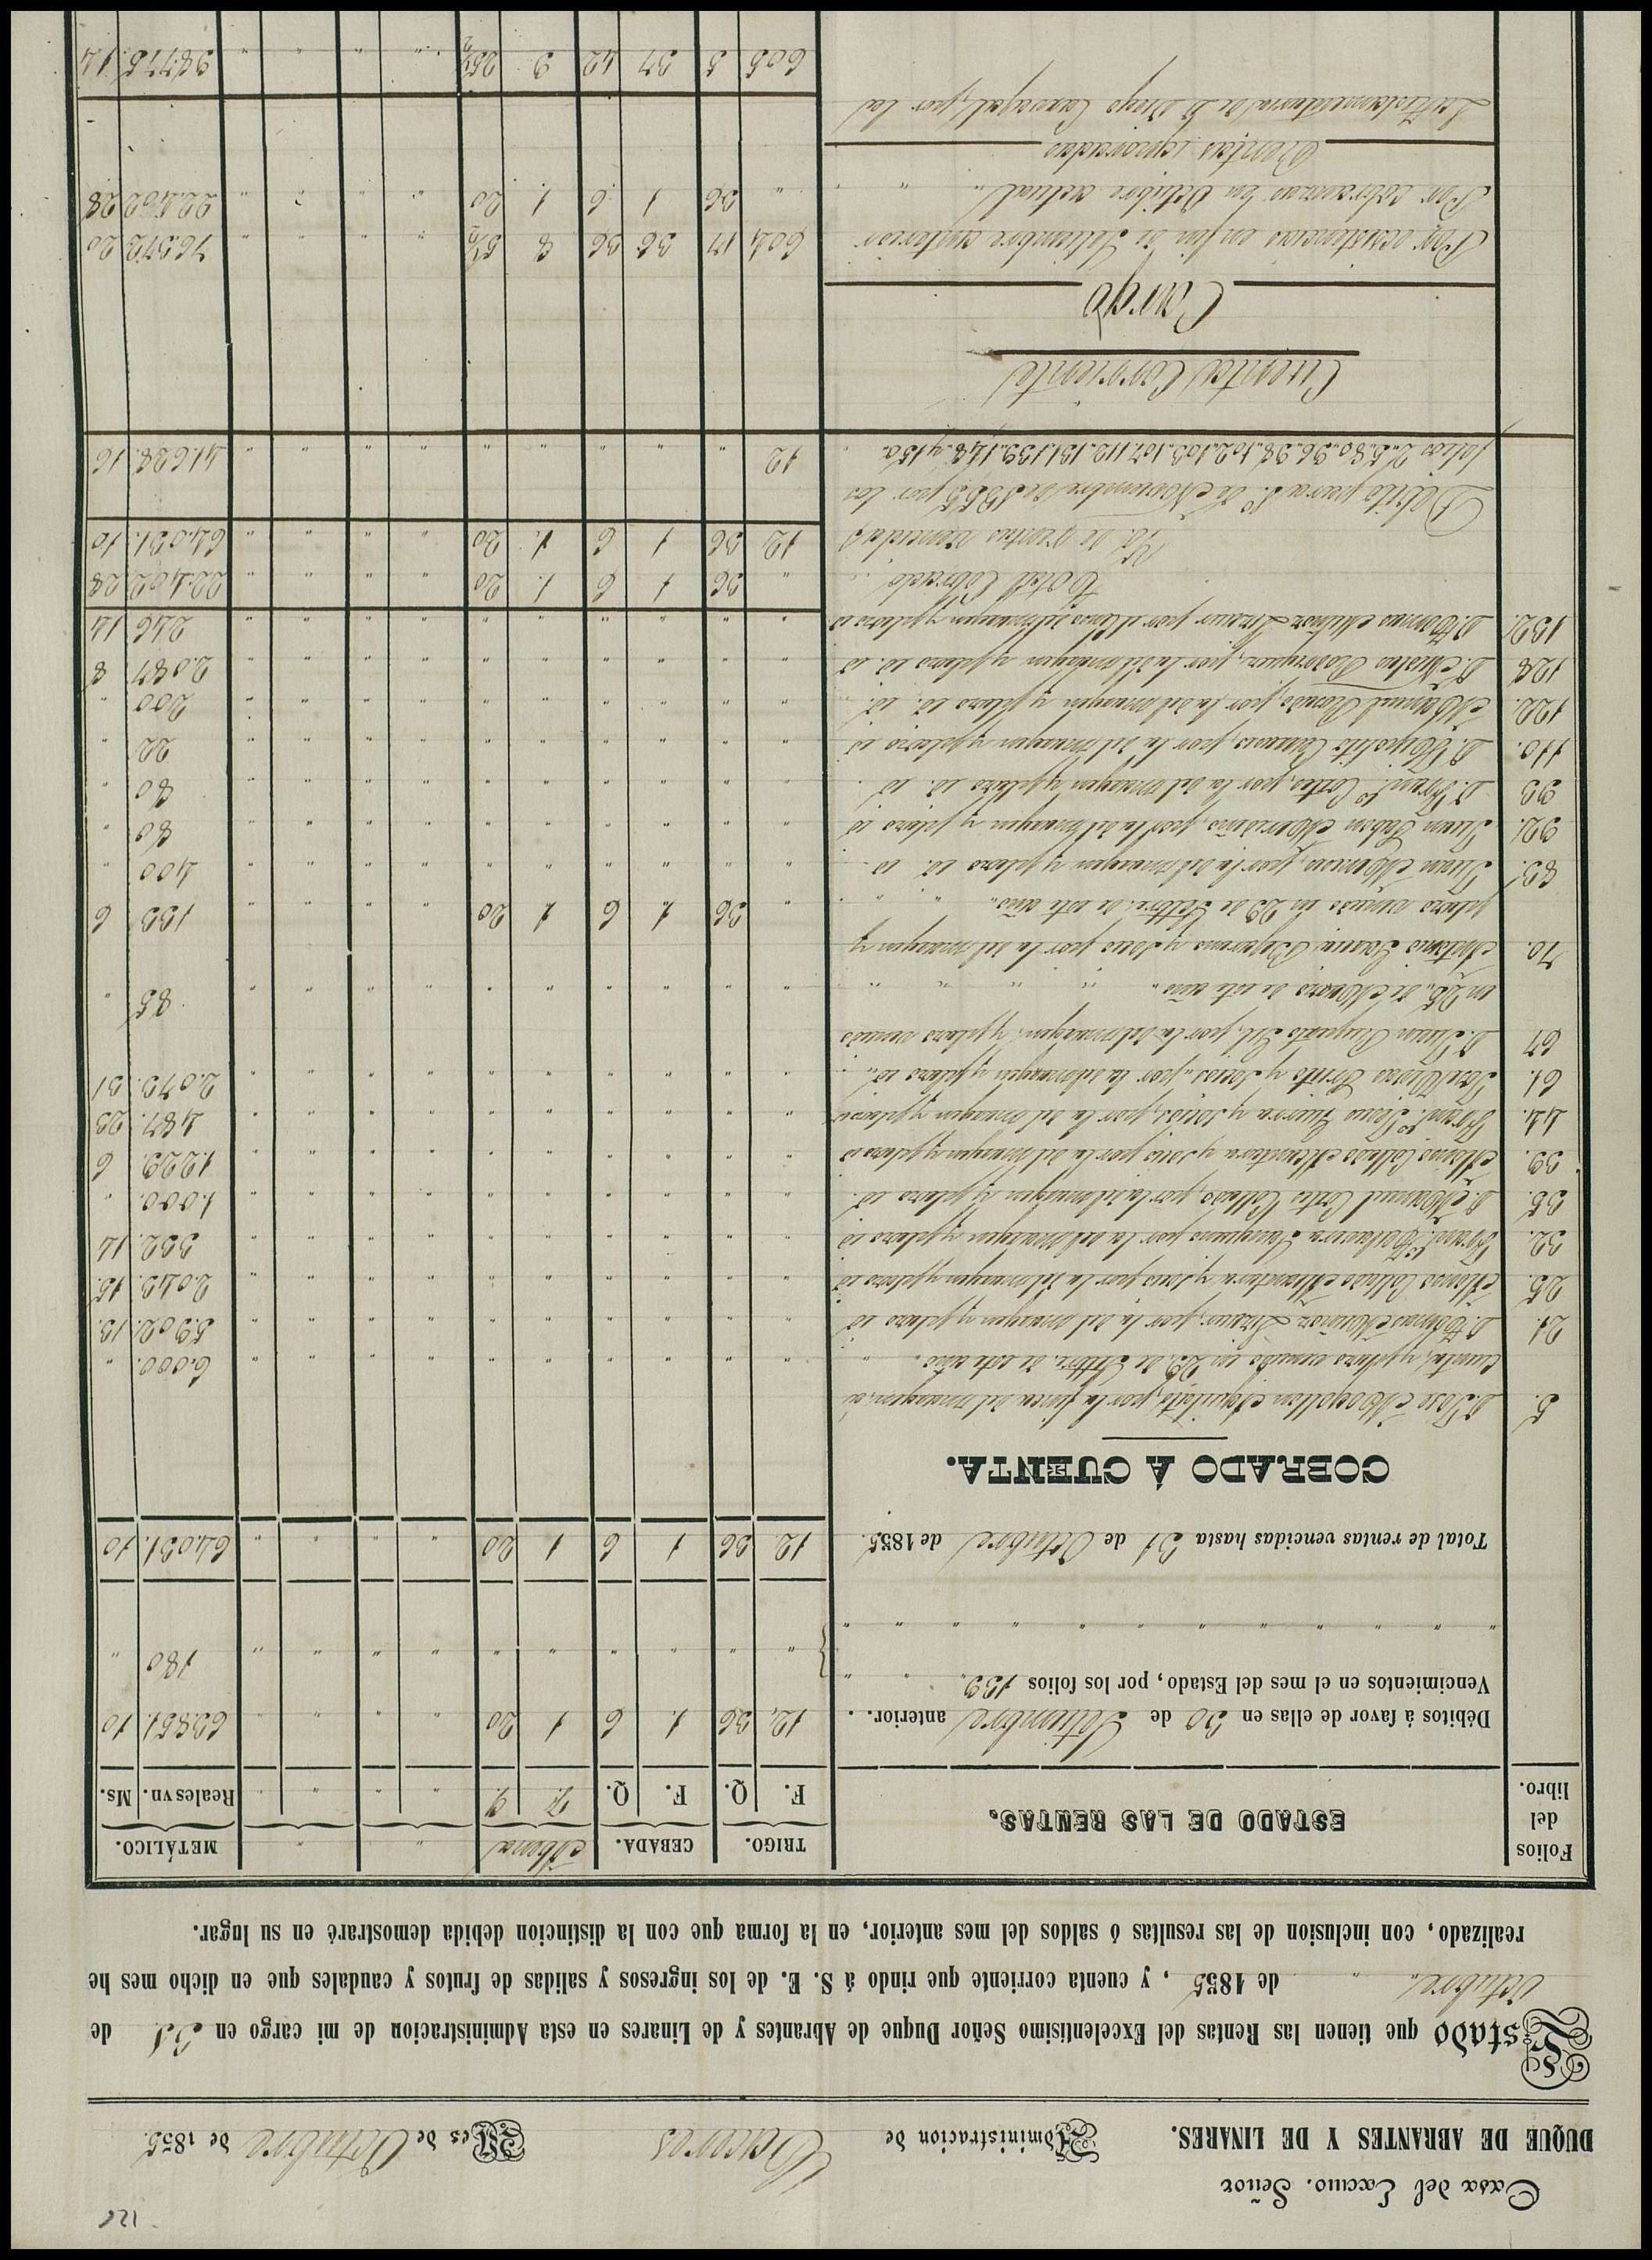 121
Casa del Excmo. Señor
DUQUE DE ABRANTES Y DE LINARES. Administracion de Cáceres Mes de Octubre de 1855.
Estado que tienen las Rentas del Excelentísimo Señor Duque de Abrantes y de Linares en esta Administracion de mi cargo en 31 de
Octubre „ „ de 1855, y cuenta corriente que rindo á S. E. de los ingresos y salidas de frutos y caudales que en dicho mes he
realizado, con inclusion de las resultas ó saldos del mes anterior, en la forma que con la distincion debida demostraré en su lugar.
Folios del libro. ESTADO DE LAS RENTAS. TRIGO. CEBADA. Abena „ „ METÁLICO.
F. Q. F. Q. F. Q. „ „ „ „ Reales vn. Ms.
Débitos á favor de ellas en 30 de Setiembre anterior. . 12. 36 1. 6 1 20 „ „ „ „ 63.851. 10
Vencimientos en el mes del Estado, por los folios 139. „ „
„ „ „ „ „ „ „ „ „ „ 180 „
„ „ „ „ „ „ „ „ „ „ „ „
Total de rentas vencidas hasta 31 de Octubre de 1855. 12. 36 1 6 1 20 „ „ „ „ 64.031. 10
COBRADO Á CUENTA.
5. D. Jose Mogollon, por la finca del margen, á
cuenta, y plazo vencido en 29. de Settre. de este año. „ „ „ „ „ „ „ „ „ „ „ 6.000. „
21. D. Tomas Muñoz, por la del margen y plazo id „ „ „ „ „ „ „ „ „ „ 5.902. 13.
25. Alonso Collado Alcantara y socio por la del margen y plazo id „ „ „ „ „ „ „ „ „ „ 2.043. 15.
32. Franco. Talavera por la del margen y plazo id „ „ „ „ „ „ „ „ „ „ 332. 14
35. D. Manuel Cortes Collado, por la del margen y plazo id. „ „ „ „ „ „ „ „ „ „ 1.000. „
39. Alonso Collado Alcantara y socio, por la del margen y plazo id „ „ „ „ „ „ „ „ „ „ 1.229. 6
44. Franco. y socios, por la del margen y plazo id „ „ „ „ „ „ „ „ „ „ 487. 23
61. Jose y socios, por la del margen y plazo id. „ „ „ „ „ „ „ „ „ „ 2.073. 31
67 D. Juan Gil, por la del margen, y plazo vencido
en 25. de Marzo de este año. „ „ „ „ „ „ „ „ „ „ „ „ „ „ „ 85 „
70. Antonio Garcia Bejarano y socio por la del margen y
plazo vencido en 29 de Settre. de este año. „ „ „ „ 36 1. 6 1 20 „ „ „ „ 133 6
83. Juan, por la del margen y plazo id. id „ „ „ „ „ „ „ „ „ „ 400 „
92. Juan Pabon, por la del margen y plazo id „ „ „ „ „ „ „ „ „ „ 80 „
93 D. Franco. Cortes, por la del margen y plazo id. id „ „ „ „ „ „ „ „ „ „ 80 „
110. D. Hipolito, por la del margen y plazo id „ „ „ „ „ „ „ „ „ „ 22 „
122. Manuel, por la del margen y plazo id. id. „ „ „ „ „ „ „ „ „ „ 200 „
128 D. Rodriguez, por la del margen y plazo id. id „ „ „ „ „ „ „ „ „ „ 2.087 8
132. D. Tomas Muñoz por del margen y plazo id „ „ „ „ „ „ „ „ „ „ 246 14
Total Cobrado „ 36 1 6 1. 20 „ „ „ „ 22.402 28
Yd. de rentas vencidas 12 36 1 6 1. 20 „ „ „ „ 64.031. 10
Débito para 1º. de Noviembre de 1855, por los
folios 2. 5. 80. 96. 98. 102. 103. 107. 112. 131. 139. 148. y 150. 12 „ „ „ „ „ „ „ „ „ 41.628. 16
Cuenta Corriente
Cargo
Por existencias en fin de Setiembre anterior 604 17 36 36 8 5½ „ „ „ „ 76.372 20
Por cobranzas en Octubre actual „ „ „ 36 1 6 1. 20 „ „ „ „ 22.402 28
Rentas
La Testamentaria de D. Diego Carvajal, por las
605 5 37 42 9 25½ „ „ „ „ 98.775. 14